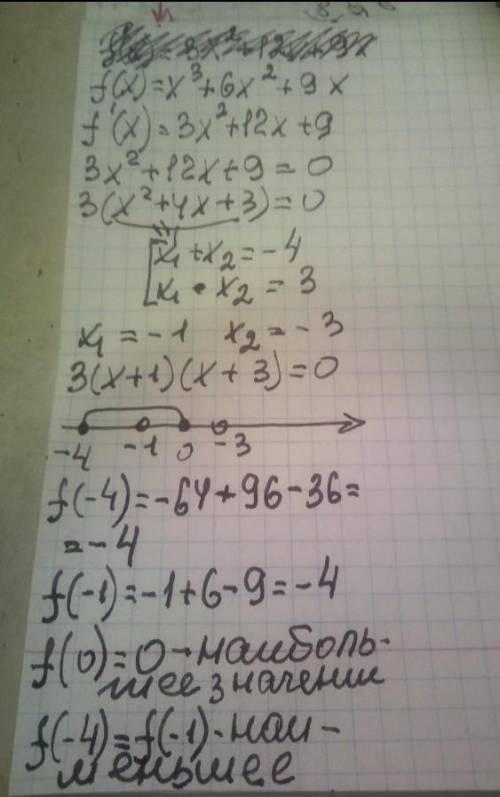 f(x)=x³+6x²+9x
f'(x)=3x²+12x+9
3x²+12x+9=0
3(x²+4x+3)=0
x₁+x₂=-4
x₁•x₂=3
x₁=-1 x₂=-3
3(x+1)(x+3)=0
-4 -1 0 -3
f(-4)=-64+96-36=
=-4
f(-1)=-1+6-9=-4
f(0)=0→наиболь-
шее значении
f(-4)=f(-1)-наи-
меньшее